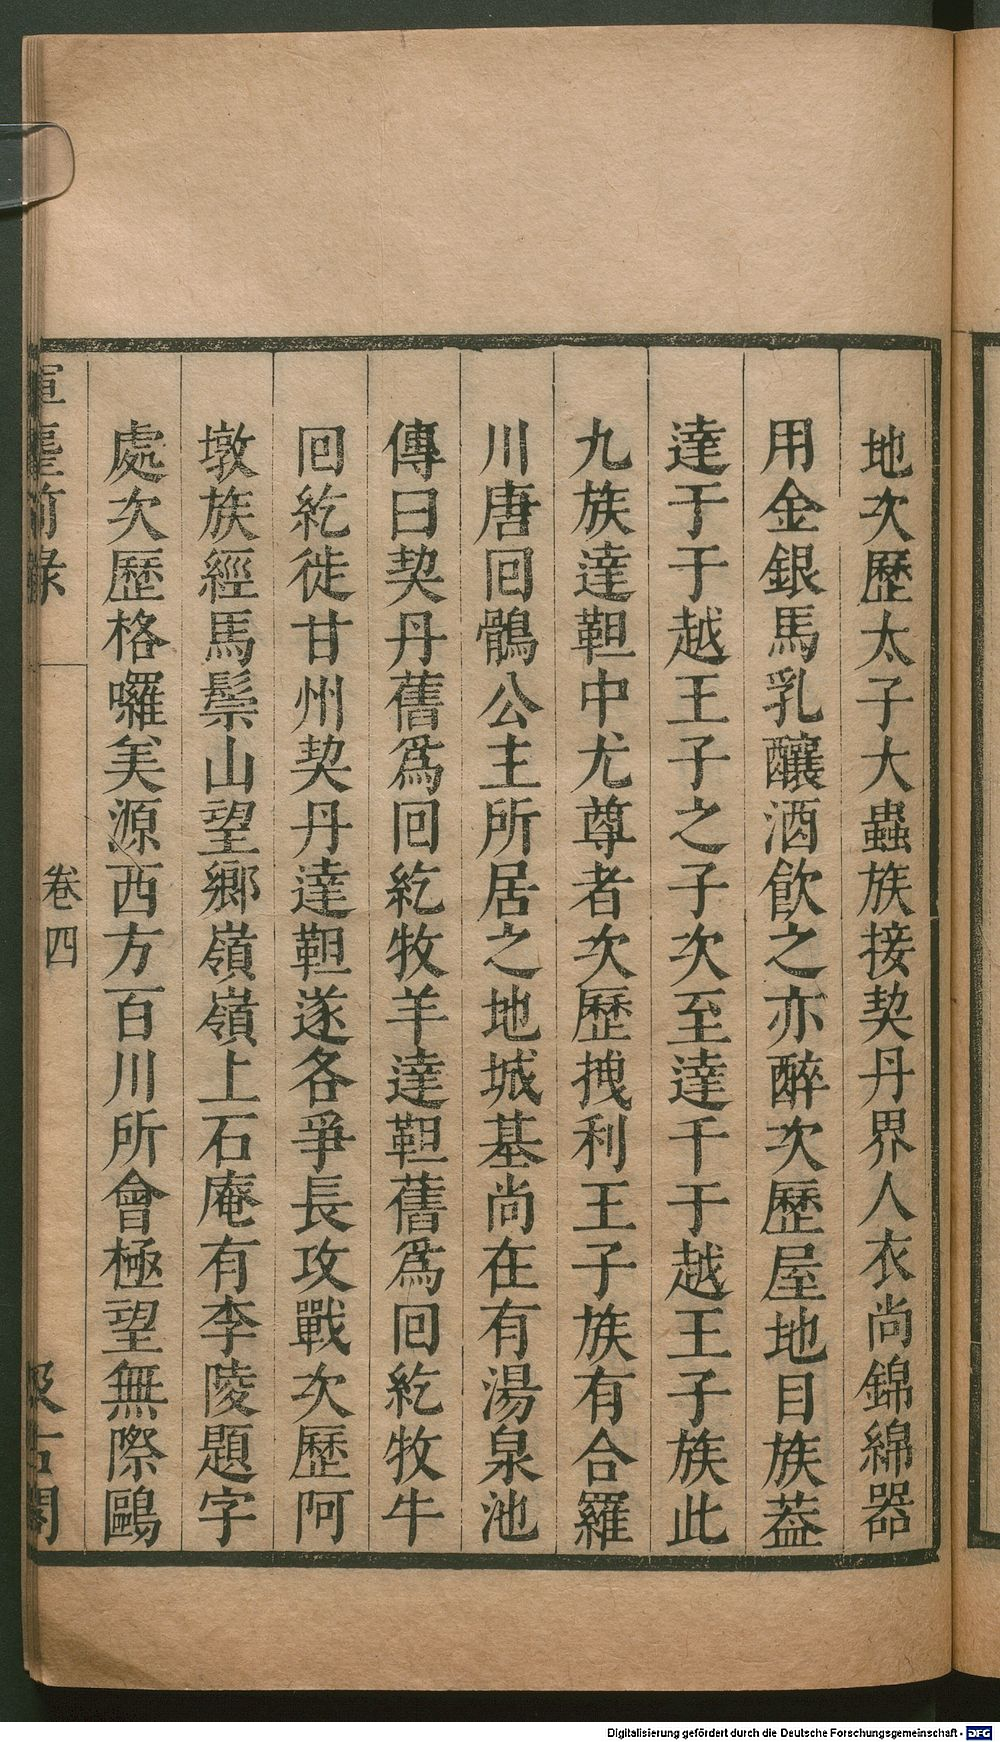 地次歷太子大蟲族接契丹界人衣尚錦綿器
用金銀馬乳釀酒飲之亦醉次歷屋地目族葢
達于于越王子之子次至達千于越王子族此
九族達靼中尤尊者次歷拽利王子族有合羅
川唐回鶻公主所居之地城基尚在有湯泉池
傳曰契丹舊爲回紇牧羊達靼舊爲回紇牧牛
回紇徙甘州契丹達靼遂各爭長攻戰次歷阿
墩族經馬鬃山望鄉嶺嶺上石庵有李陵題字
處次歷格囉美源西方百川所會極望無際鷗
前錄
卷四
古閣
Digitalisierung gefördert durch die Deutsche Forschungsgemeinschaft - DFG